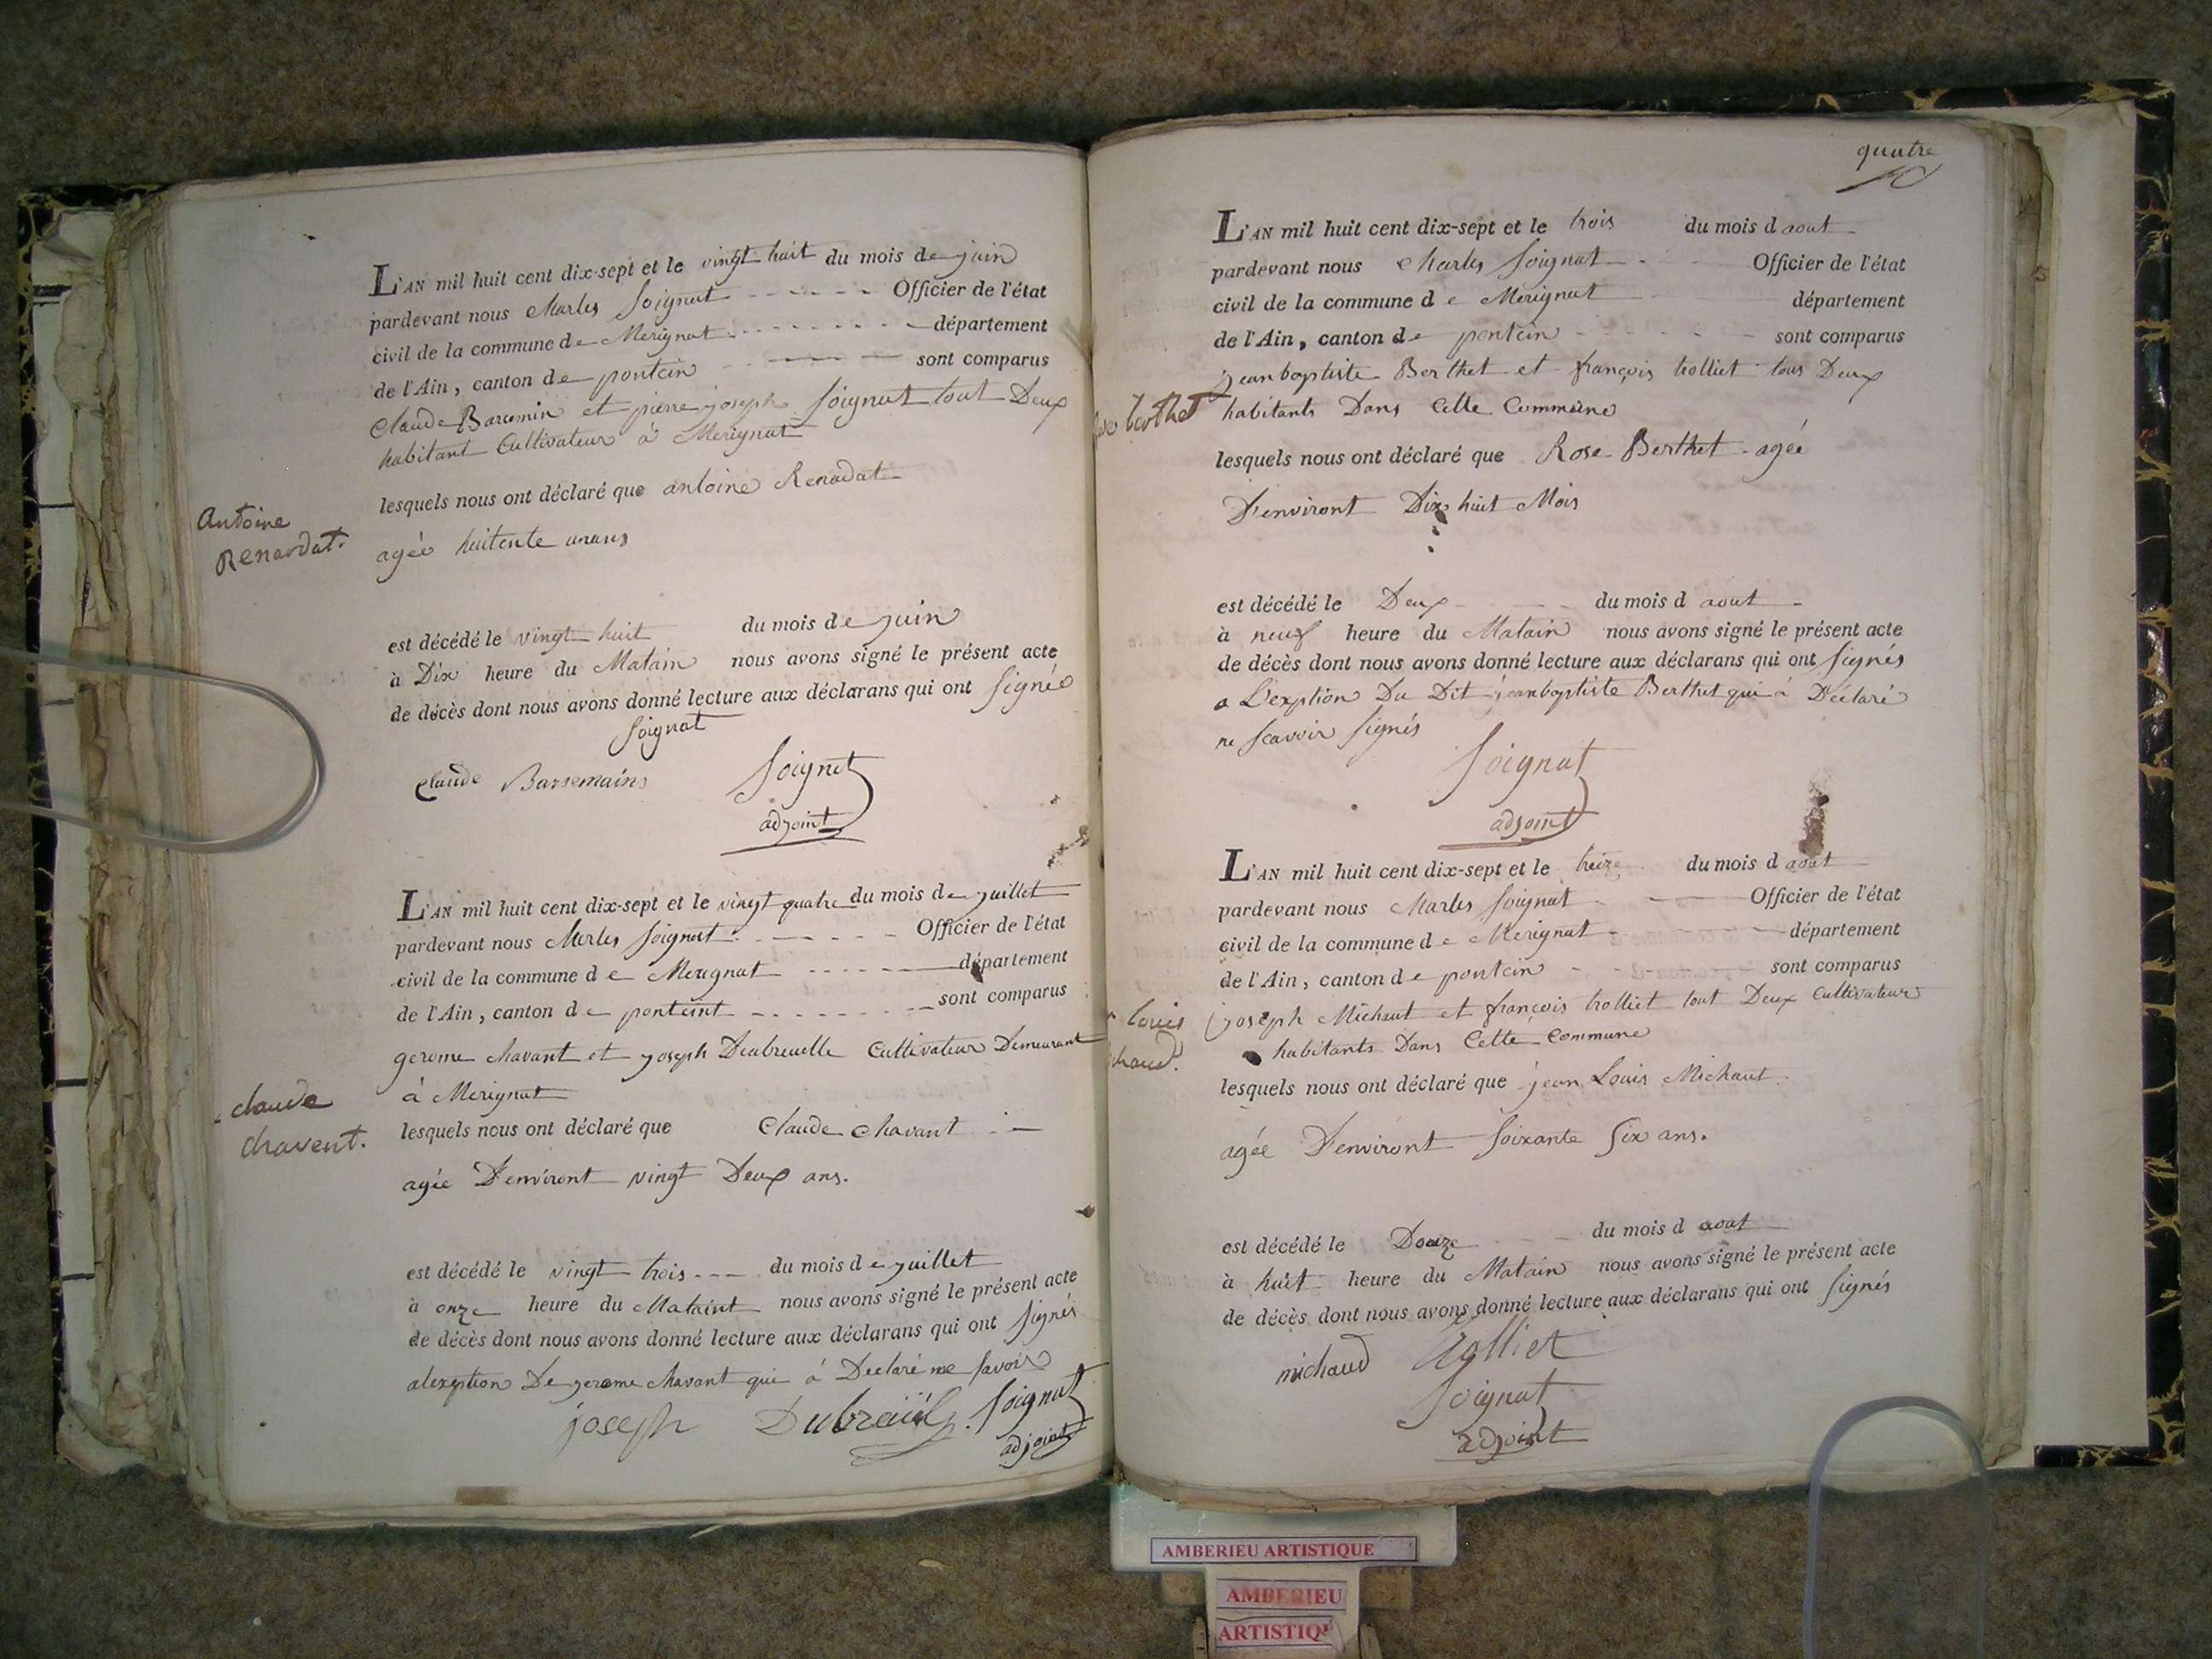 L'AN mil huit cent dix-sept et le vingt huit du mois de juin
pardevant nous Charles Soignat Officier de l'état
civil de la commune de Merignat département
de l'Ain, canton de pontein sont comparus
Claude Barcemin et pierre joseph Soignat tout Deux
habitant Cultivateur à Merignat
lesquels nous ont déclaré que antoine Renadat
Antoine
Renardat.
agée huitente unans
est décédé le vingt huit du mois de juin
à Dix heure du Matain nous avons signé le présent acte
de décès dont nous avons donné lecture aux déclarans qui ont Signée
Soignat
Claude Barsemains Soignat
adjoint
L'AN mil huit cent dix-sept et le vingt quatre du mois de juillet
pardevant nous Charles Soignat Officier de l'état
civil de la commune de Merignat département
de l'Ain, canton de ponteint sont comparus
gerome chavant et joseph Deubreuelle Cultivateur Demeurant
à Merignat
claude
chavent.
lesquels nous ont déclaré que Claude chavant
agée D'environt vingt Deux ans.
est décédé le vingt trois du mois de juillet
à onze heure du Mataint nous avons signé le présent acte
de décès dont nous avons donné lecture aux déclarans qui ont Signés
alexption De gerome chavant qui á Declaré ne Savoir
joseph Dubreüil Soignat
adjoint
quatre
L'AN mil huit cent dix-sept et le trois du mois d aout
pardevant nous Charles Soignat Officier de l'état
civil de la commune de Merignat département
de l'Ain, canton de pontein sont comparus
jean baptiste Berthet et françois trolliet tous Deux
berthet
habitants Dans Cette Commune
lesquels nous ont déclaré que Rose Berthet agée
D'environt Dix huit Mois
est décédé le Deux du mois d aout
à neuf heure du Matain nous avons signé le présent acte
de décès dont nous avons donné lecture aux déclarans qui ont Signés
a L'exption Du Dit jean baptiste Berthet qui á Déclaré
ne Scavoir Signés
Soignat
adjoint
L'AN mil huit cent dix-sept et le treize du mois d aout
pardevant nous Charles Soignat Officier de l'état
civil de la commune de Merignat département
de l'Ain, canton de pontein sont comparus
louis
joseph Michaut et françois trolliet tout Deux Cultivateur
habitants Dans Cette Commune
lesquels nous ont déclaré que jean Louis Michaut
agée D'environt Soixante Six ans.
est décédé le Douze du mois d aout
à huit heure du Matain nous avons signé le présent acte
de décès dont nous avons donné lecture aux déclarans qui ont Signés
michaud trolliet
Soignat
adjoint
AMBERIEU ARTISTIQUE
AMBERIEU
ARTISTIQ